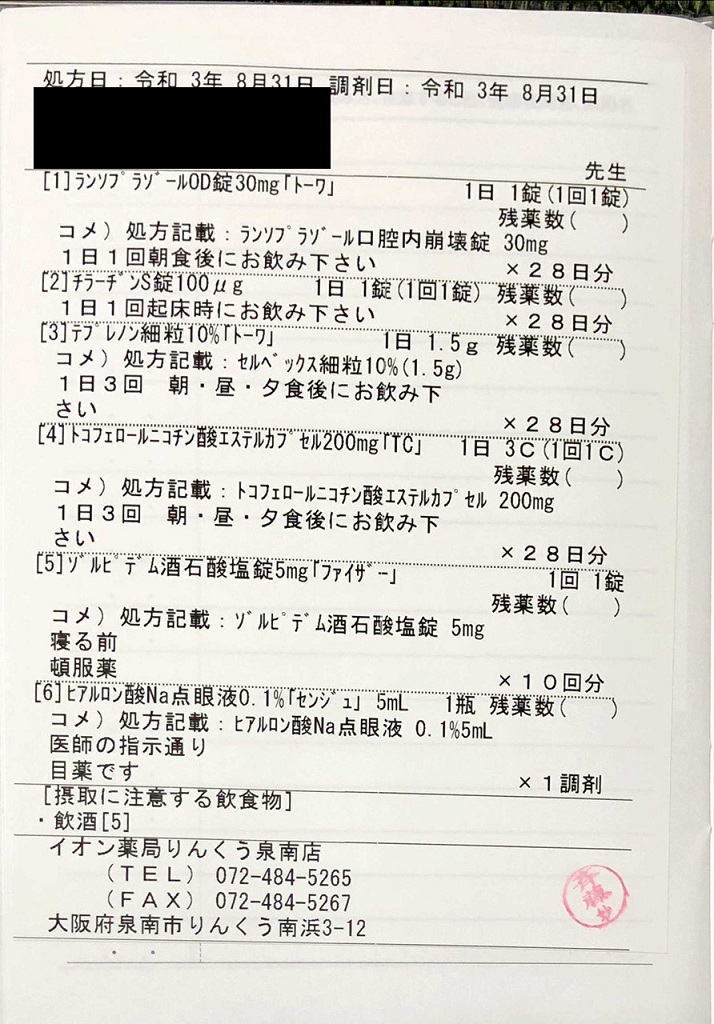 処方日：令和 3年 8月31日 調剤日：令和 3年 8月31日
先生
[1]ﾗﾝｿﾌﾟﾗｿﾞｰﾙOD錠30mg｢ﾄｰﾜ｣ 1日 1錠(1回1錠)
残薬数( )
コメ）処方記載：ﾗﾝｿﾌﾟﾗｿﾞｰﾙ口腔内崩壊錠 30mg
１日１回朝食後にお飲み下さい ×２８日分
[2]ﾁﾗｰﾁﾞﾝS錠100μg 1日 1錠(1回1錠) 残薬数( )
１日１回起床時にお飲み下さい ×２８日分
[3]ﾃﾌﾟﾚﾉﾝ細粒10%｢ﾄｰﾜ｣ 1日 1.5ｇ 残薬数( )
コメ）処方記載：ｾﾙﾍﾞｯｸｽ細粒10%(1.5g)
１日３回 朝・昼・夕食後にお飲み下
さい ×２８日分
[4]ﾄｺﾌｪﾛｰﾙﾆｺﾁﾝ酸ｴｽﾃﾙｶﾌﾟｾﾙ200mg｢TC｣ 1日 3C(1回1C)
残薬数( )
コメ）処方記載：ﾄｺﾌｪﾛｰﾙﾆｺﾁﾝ酸ｴｽﾃﾙｶﾌﾟｾﾙ 200mg
１日３回 朝・昼・夕食後にお飲み下
さい ×２８日分
[5]ｿﾞﾙﾋﾟﾃﾞﾑ酒石酸塩錠5mg｢ﾌｧｲｻﾞｰ｣ 1回 1錠
残薬数( )
コメ）処方記載：ｿﾞﾙﾋﾟﾃﾞﾑ酒石酸塩錠 5mg
寝る前
頓服薬 ×１０回分
[6]ﾋｱﾙﾛﾝ酸Na点眼液0.1%｢ｾﾝｼﾞｭ｣ 5mL 1瓶 残薬数( )
コメ）処方記載：ﾋｱﾙﾛﾝ酸Na点眼液 0.1%5mL
医師の指示通り
目薬です ×１調剤
[摂取に注意する飲食物]
・飲酒[5]
イオン薬局りんくう泉南店
（ＴＥＬ） 072-484-5265
（ＦＡＸ） 072-484-5267
大阪府泉南市りんくう南浜3-12